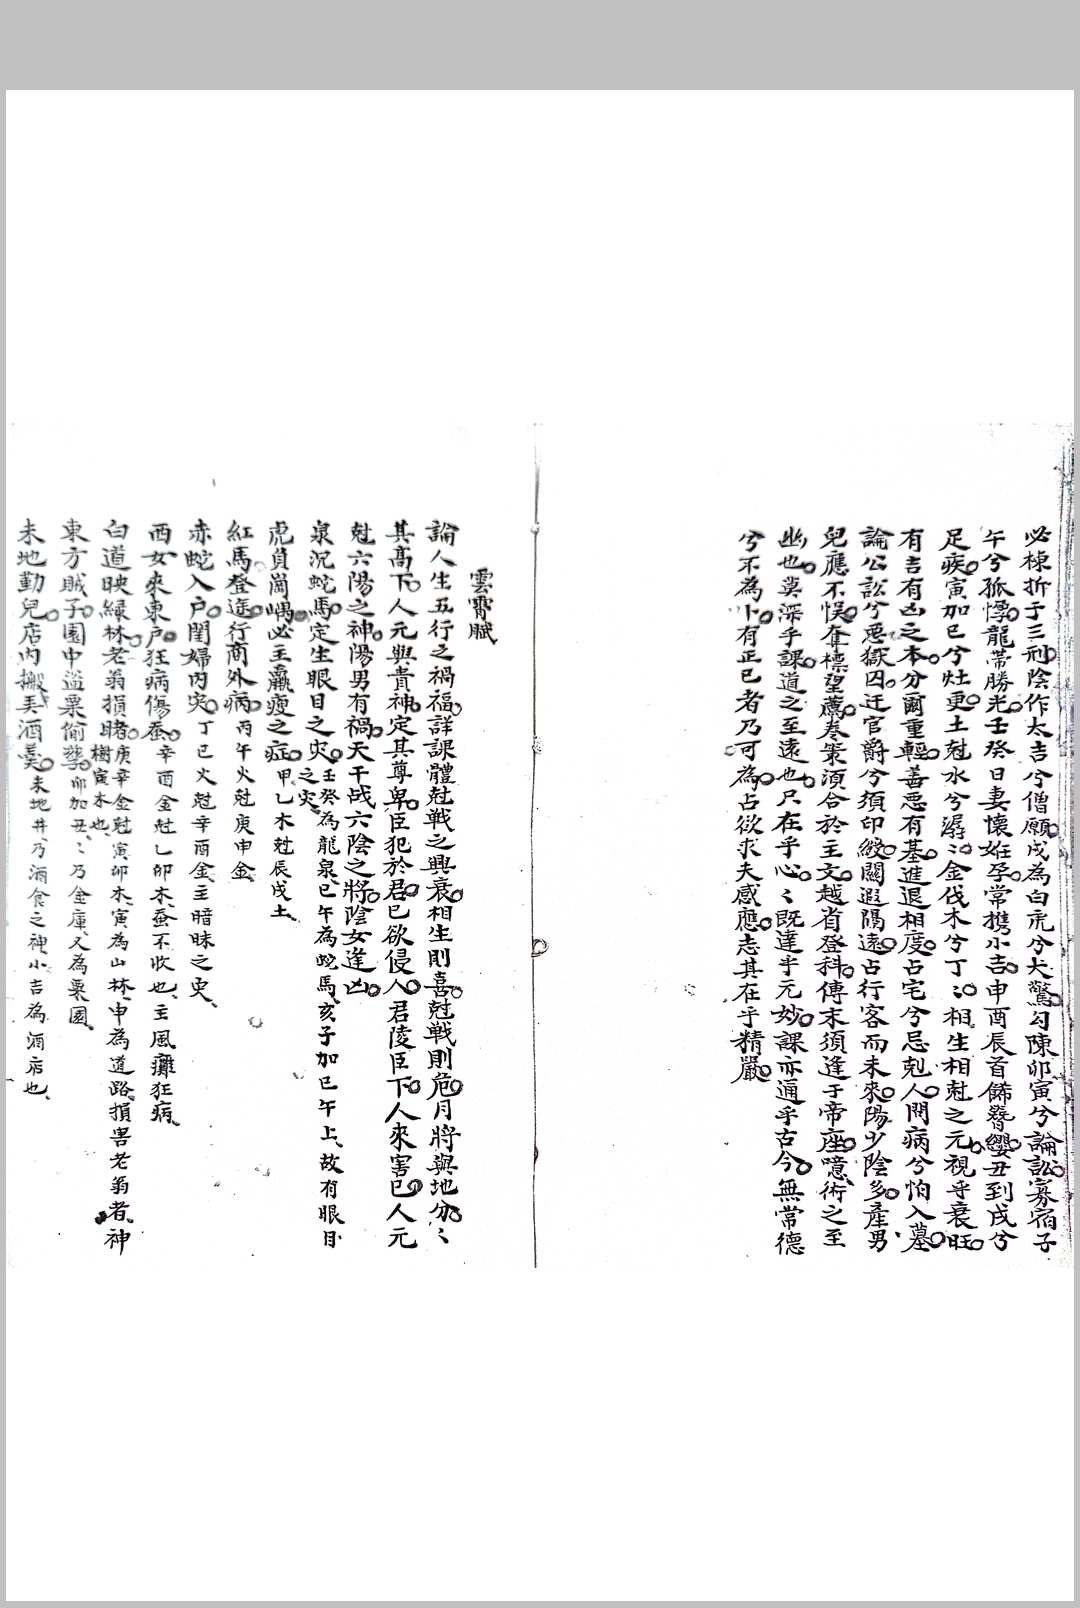 必棟折于三刑陰作太吉兮僧願戌為白虎兮犬驚勾陳卯寅兮論訟寡宿子
午兮孤惸龍帶勝光壬癸日妻懷姙孕常携小吉申酉辰首餙簪纓丑到戌兮
足疾寅加巳兮灶更土尅水兮潺〻金伐木兮丁〻相生相尅之元視乎衰旺
有吉有凶之本分爾重輕善惡有基進退相度占宅兮忌剋人問病兮怕入墓
論公訟兮惡獄囚迁官爵兮須印綬關遐隅遠占行客而未來陽少陰多產男
兒應不悞奪標望薦卷策須合於主文越省登科傳末須逢于帝座噫術之至
幽也莫深乎課道之至遠也只在乎心〻既達乎元妙課亦通乎古今無常德
兮不為卜有正已者乃可為占欲求夫感應志其在乎精嚴
雲霄賦
論人生五行之禍福詳課體尅戰之興衰相生則喜尅戰則危月將與地分〻
其高下人元與貴神定其尊卑臣犯於君已欲侵人君陵臣下人來害已人元
尅六陽之神陽男有禍天干战六陰之將陰女逢凶
泉沉蛇馬定生眼目之灾壬癸為龍泉巳午為蛇馬亥子加巳午上故有眼目
之灾
虎負嵎嵎必主羸瘦之症甲乙木尅辰戌土
紅馬登途行商外病丙午火尅庚申金
赤蛇入户閨婦内灾丁巳火尅辛酉金主暗昧之㕜
酉女來東户狂病傷蚕辛酉金尅乙卯木蚕不收也主風癱狂病
白道映綠林老翁損睹庚辛金尅寅卯木寅為山林申為道路損害老翁者神
樹寅木也
東方賊子園中盗粟偷卯加丑〻乃金庫又為粟園
未地勤兒店内搬弄酒羮未地井乃酒食之神小吉為酒店也